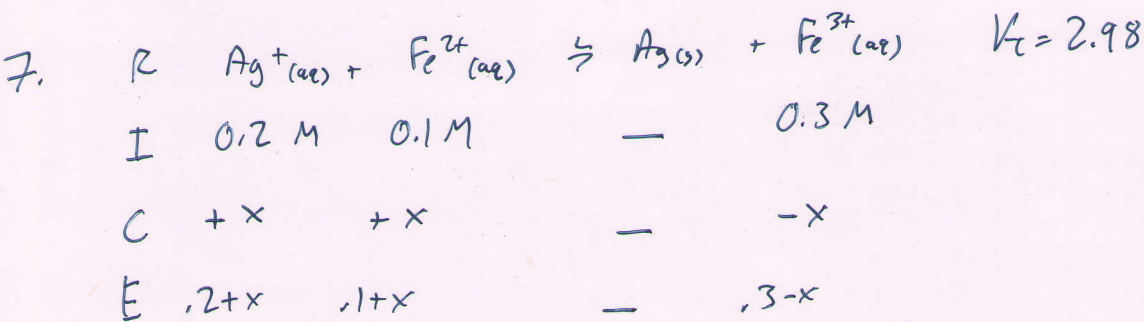 7. R Ag⁺(aq) + Fe²⁺(aq) ⇌ Ag(s) + Fe³⁺(aq) Kc = 2.98
I 0.2 M 0.1 M — 0.3 M
C + x + x — - x
E .2+x .1+x — .3-x